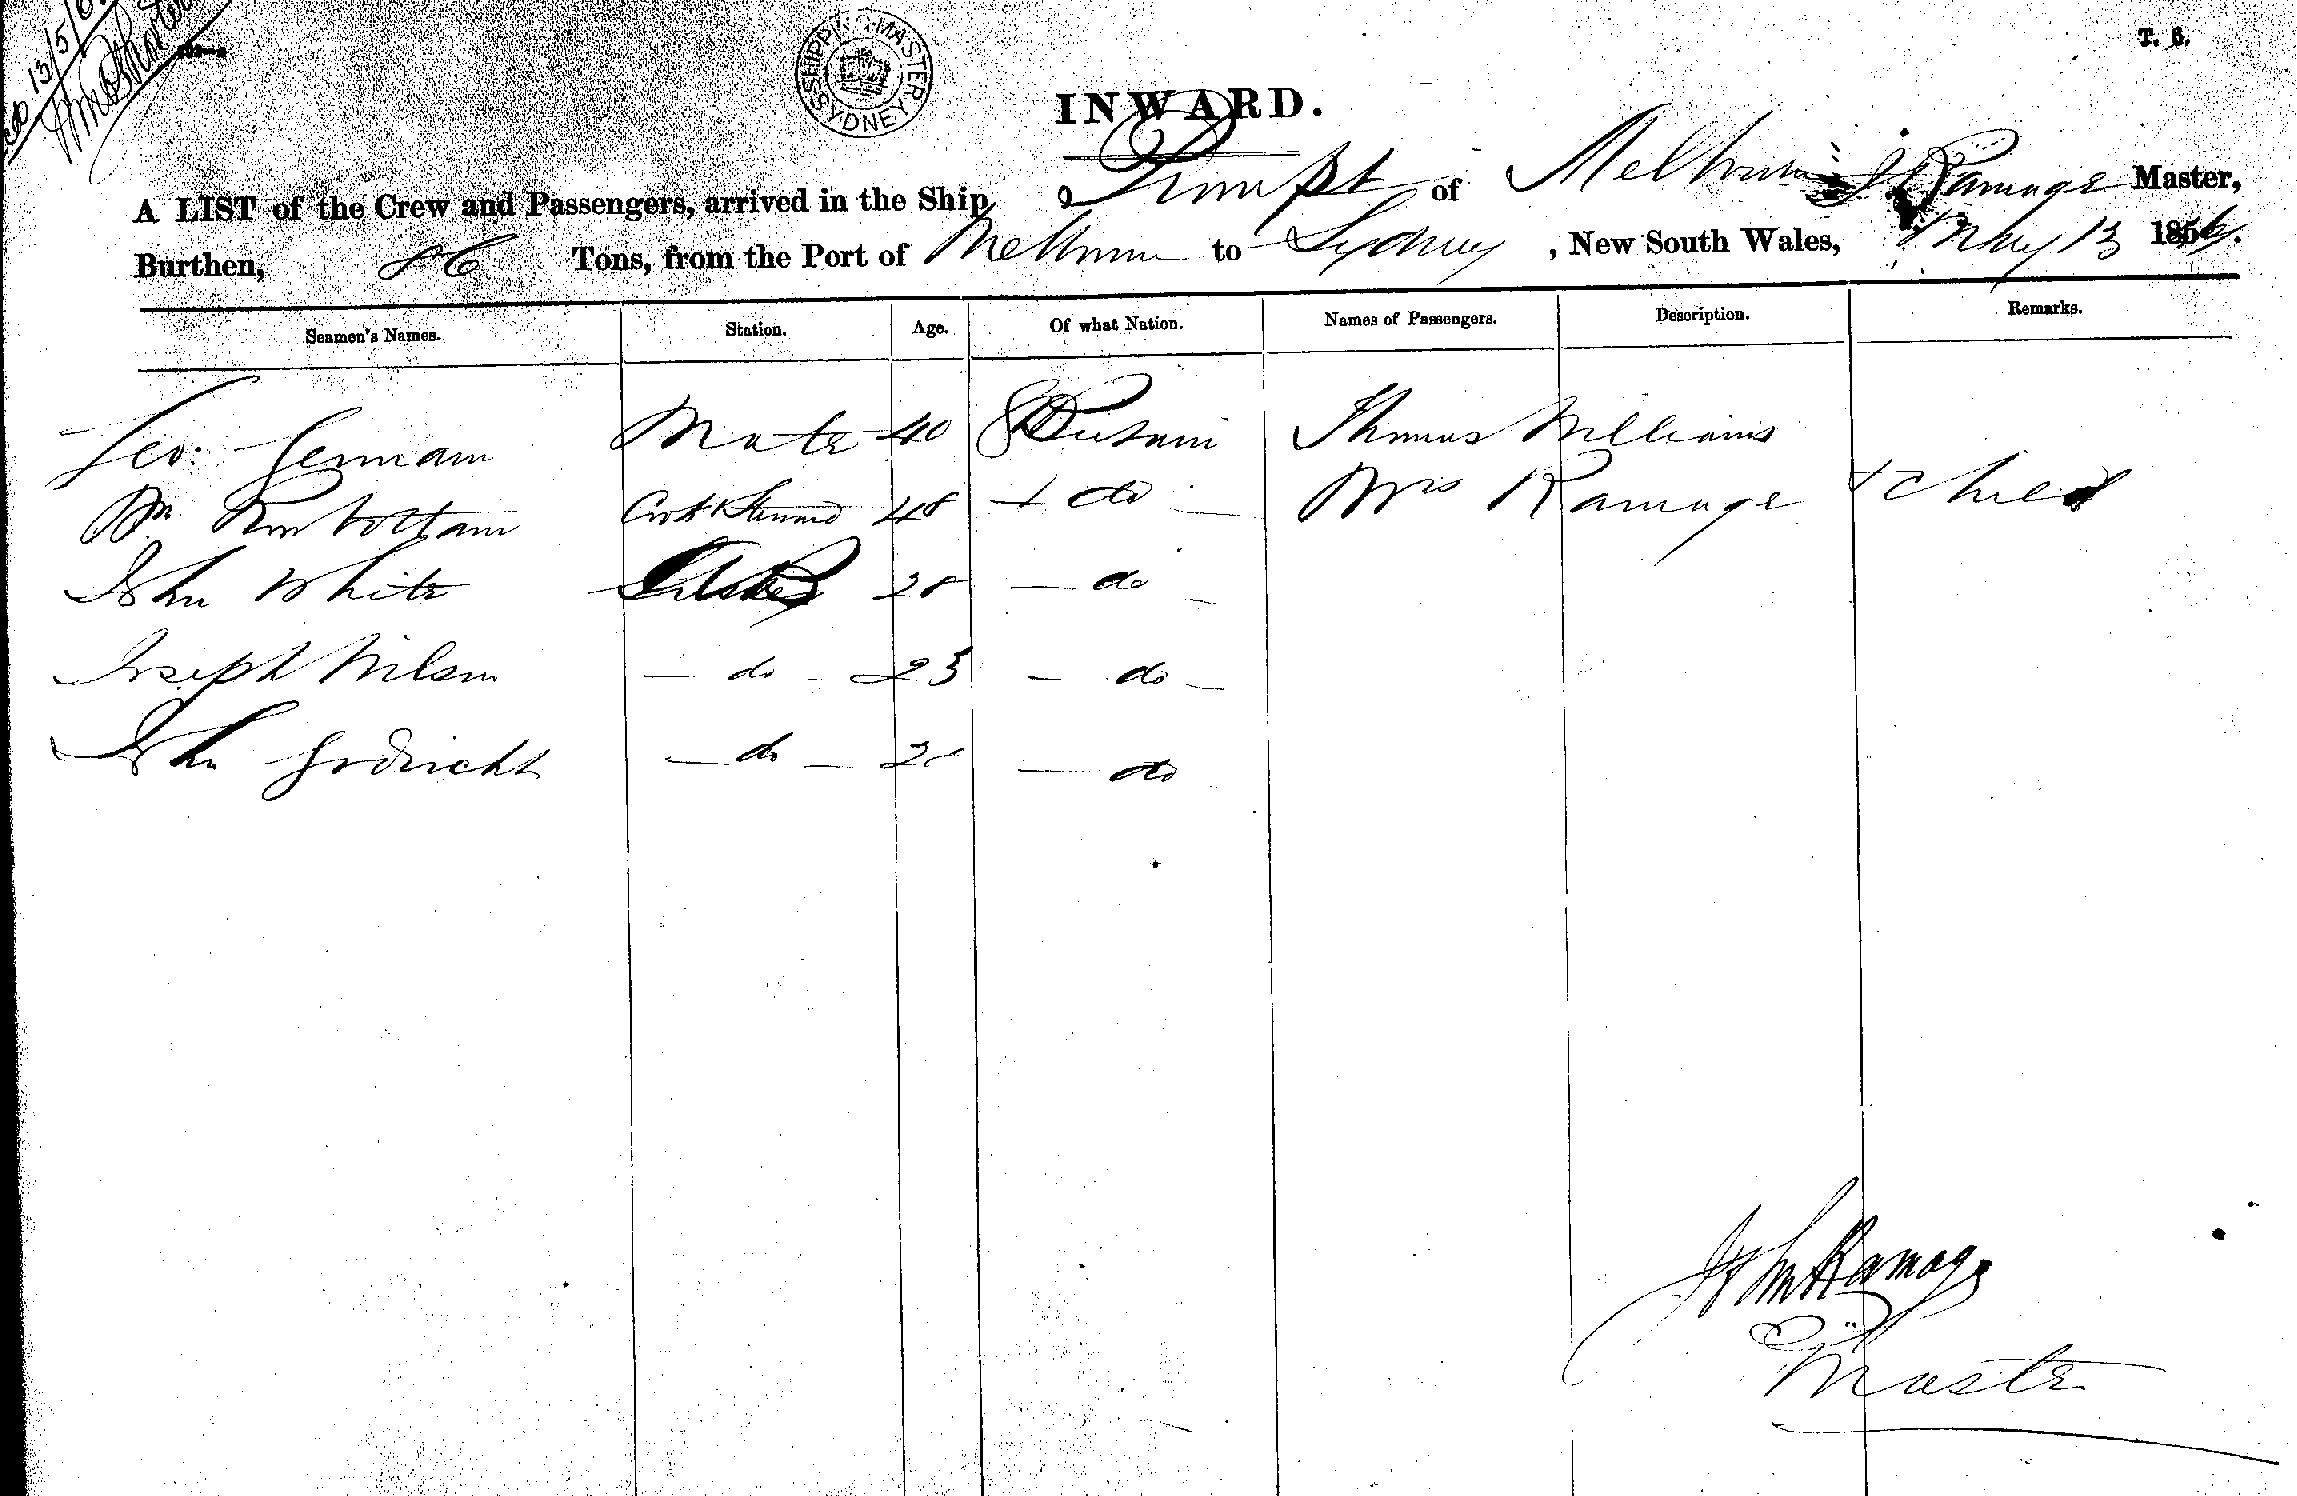 13/5/6
SHIPPING MASTER SYDNEY
T. S.
INWARD.
A LIST of the Crew and Passengers, arrived in the Ship Prompt of Melbourne J Ramage Master,
Burthen, 86 Tons, from the Port of Melbourne to Sydney, New South Wales, May 13 186
Seamen's Names. Station. Age. Of what Nation. Names of Passengers. Description. Remarks.
Geo. German Mate 40 Britain Thomas Williams
Wm Cook & Steward 48 do Mrs Ramage & Child
John White 28 do
Joseph Wilson do 25 do
John do do
John Ramage
Master